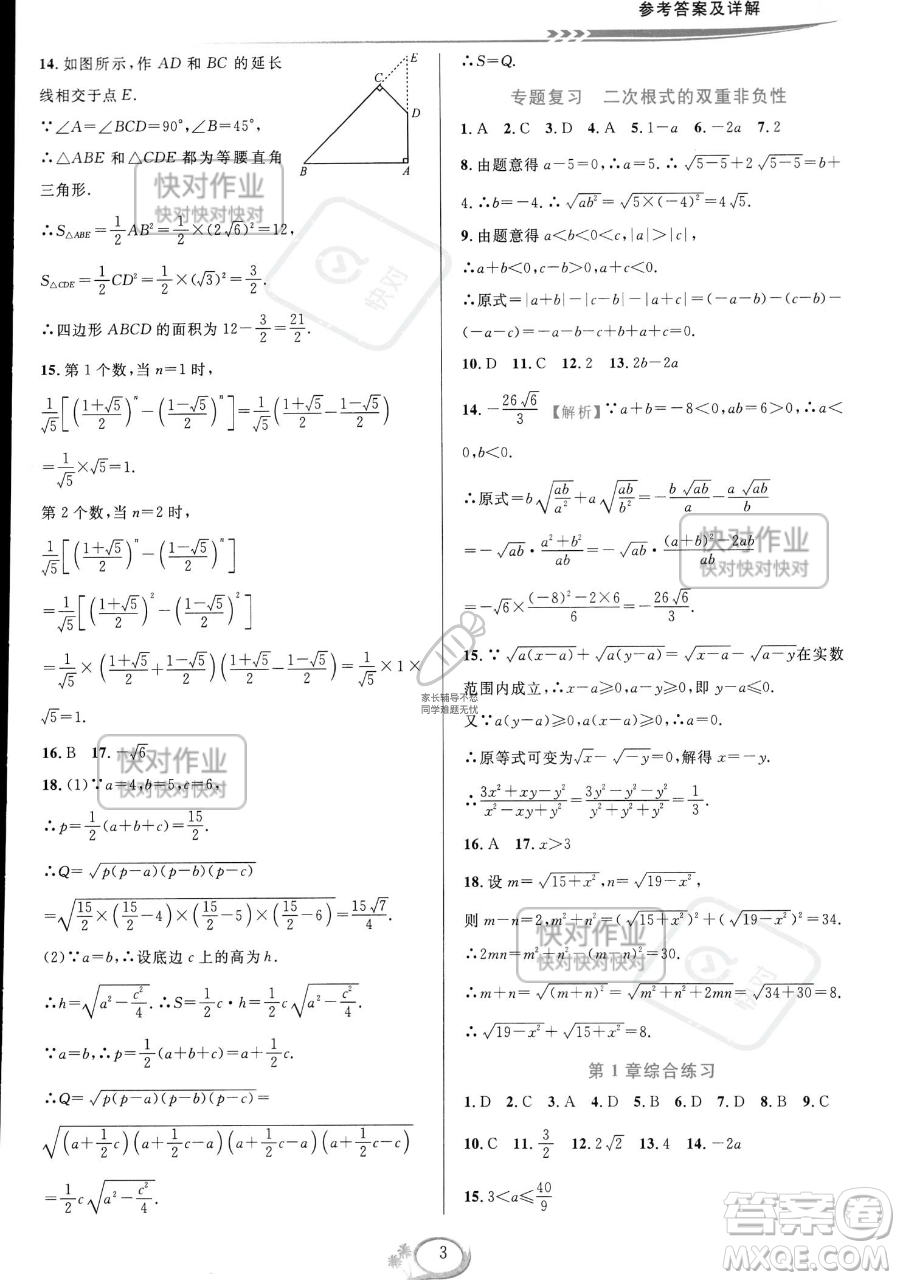 参考答案及详解
14. 如图所示，作 AD 和 BC 的延长
线相交于点 E.
∵∠A=∠BCD=90°，∠B=45°，
∴△ABE 和△CDE 都为等腰直角
三角形.
∴S△ABE=1/2 AB²=1/2×(2√6)²=12，
S△CDE=1/2 CD²=1/2×(√3)²=3/2.
∴四边形 ABCD 的面积为 12-3/2=21/2.
E
C
D
B
A
15. 第 1 个数，当 n=1 时，
1/√5[((1+√5)/2)ⁿ-((1-√5)/2)ⁿ]=1/√5((1+√5)/2-(1-√5)/2)
=1/√5×√5=1.
第 2 个数，当 n=2 时，
1/√5[((1+√5)/2)ⁿ-((1-√5)/2)ⁿ]
=1/√5[((1+√5)/2)²-((1-√5)/2)²]
=1/√5×((1+√5)/2+(1-√5)/2)((1+√5)/2-(1-√5)/2)=1/√5×1×
√5=1.
16. B 17. -√6
18. (1)∵a=4，b=5，c=6，
∴p=1/2(a+b+c)=15/2.
∴Q=√(p(p-a)(p-b)(p-c))
=√(15/2×(15/2-4)×(15/2-5)×(15/2-6))=15√7/4.
(2)∵a=b，∴设底边 c 上的高为 h.
∴h=√(a²-c²/4).∴S=1/2c·h=1/2c√(a²-c²/4).
∵a=b，∴p=1/2(a+b+c)=a+1/2c.
∴Q=√(p(p-a)(p-b)(p-c))=
√((a+1/2c)(a+1/2c-a)(a+1/2c-a)(a+1/2c-c))
=1/2c√(a²-c²/4).
∴S=Q.
专题复习 二次根式的双重非负性
1. A 2. C 3. D 4. A 5. 1-a 6. -2a 7. 2
8. 由题意得 a-5=0，∴a=5.∴√(5-5)+2√(5-5)=b+
4.∴b=-4.∴√(ab²)=√(5×(-4)²)=4√5.
9. 由题意得 a<b<0<c，|a|>|c|，
∴a+b<0，b-c<0，a+c<0.
∴原式=|a+b|-|b-c|+|a+c|=(-a-b)-(c-b)+
(-a-c)=-2a-2c.
10. D 11. C 12. 2 13. 2b-2a
14. -26√6/3 【解析】∵a+b=-8<0，ab=6>0，∴a<
0，b<0.
∴原式=b√(ab/a²)+a√(ab/b²)=-b√(ab)/a-a√(ab)/b
=-√(ab)·(a²+b²)/ab=-√(ab)·((a+b)²-2ab)/ab
=-√6×((-8)²-2×6)/6=-26√6/3.
15. ∵√(a(x-a))+√(a(y-a))=√(x-a)-√(a-y)在实数
范围内成立，∴x-a≥0，a-y≥0，即 y≤a≤x.
又∵a(y-a)≥0，a(x-a)≥0，∴a=0.
∴原等式可变为√x-√(-y)=0，解得 x=-y.
∴(3x²+xy-y²)/(x²-xy+y²)=(3y²-y²-y²)/(y²+y²+y²)=1/3.
16. A 17. x>3
18. 设 m=√(15+x²)，n=√(19-x²)，
则 m-n=2，m²+n²=(√(15+x²))²+(√(19-x²))²=34.
∴2mn=m²+n²-(m-n)²=30.
∴m+n=√((m+n)²)=√(m²+n²+2mn)=√(34+30)=8.
∴√(19-x²)+√(15+x²)=8.
第 1 章综合练习
1. D 2. C 3. A 4. D 5. B 6. D 7. D 8. B 9. C
10. C 11. 3/2 12. 2√2 13. 4 14. -2a
15. 3<a≤40/9
3
快对作业
快对快对快对
快对
快对作业
快对快对快对
家长辅导不愁
同学难题无忧
快对作业
快对快对快对
快对作业
快对快对快对
答案圈
MXQE.COM